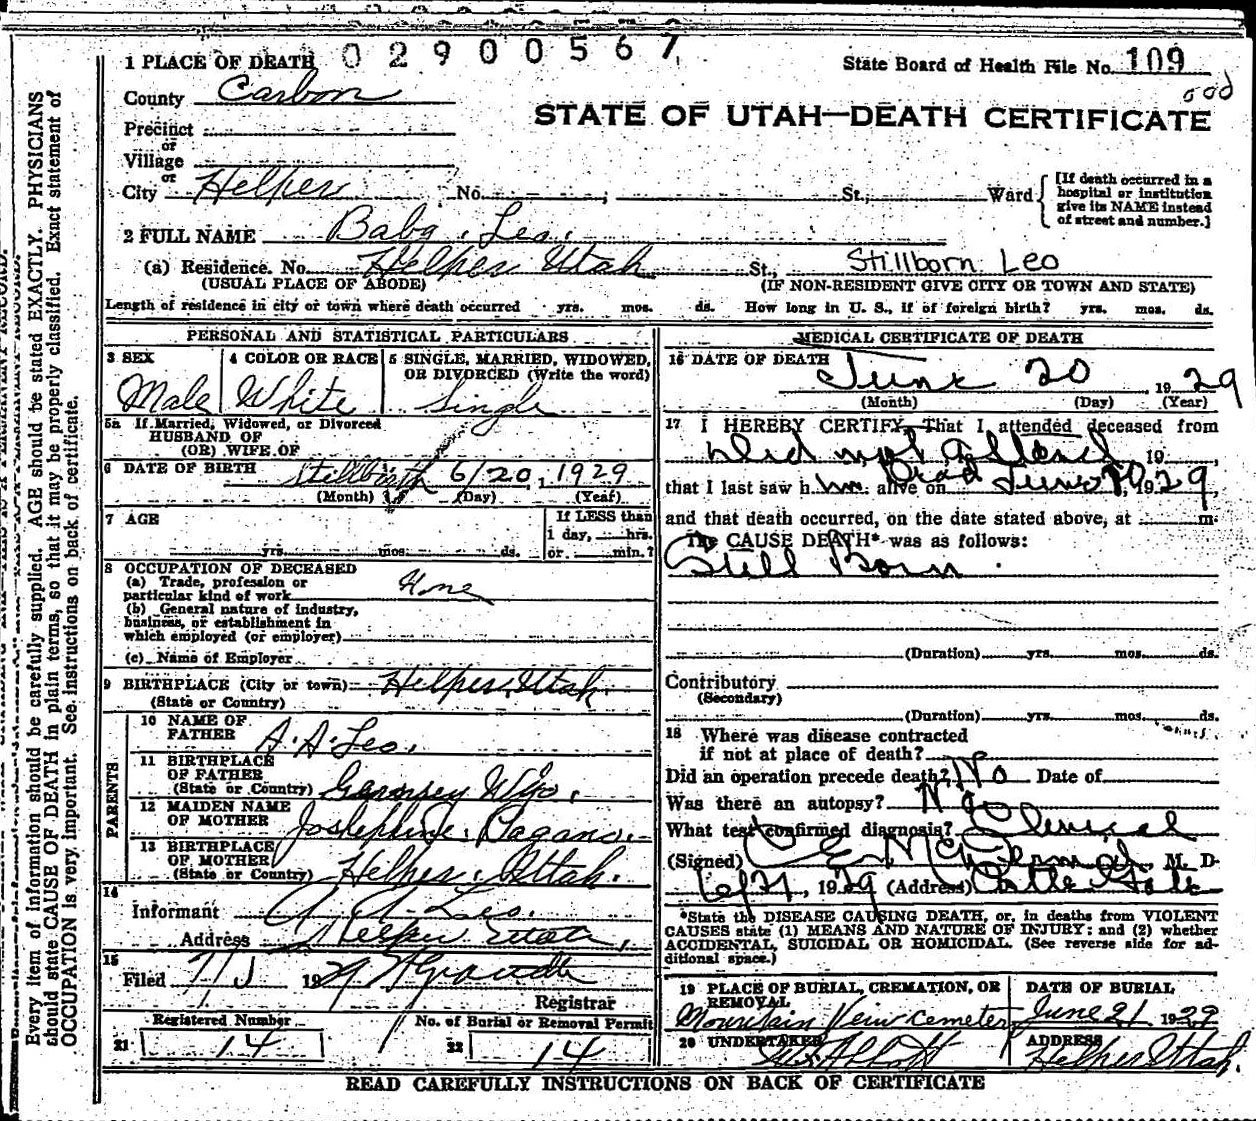 02900567
1 PLACE OF DEATH
State Board of Health File No. 109
County Carbon
STATE OF UTAH—DEATH CERTIFICATE
Precinct
or
Village
or
City Helper No. St., Ward [If death occurred in a hospital or institution give its NAME instead of street and number.]
2 FULL NAME Baby Leo.
(a) Residence. No. Helper Utah St., Stillborn Leo
(USUAL PLACE OF ABODE) (IF NON-RESIDENT GIVE CITY OR TOWN AND STATE)
Length of residence in city or town where death occurred yrs. mos. ds. How long in U. S., if of foreign birth? yrs. mos. ds.
PERSONAL AND STATISTICAL PARTICULARS
3 SEX
Male
4 COLOR OR RACE
White
5 SINGLE, MARRIED, WIDOWED,
OR DIVORCED (Write the word)
Single
5a If Married, Widowed, or Divorced
HUSBAND OF
(OR) WIFE OF
6 DATE OF BIRTH Stillbirth 6/20, 1929
(Month) (Day) (Year)
7 AGE
yrs. mos. ds.
If LESS than
1 day, hrs.
or min.?
8 OCCUPATION OF DECEASED
(a) Trade, profession or
particular kind of work None
(b) General nature of industry,
business, or establishment in
which employed (or employer)
(c) Name of Employer
9 BIRTHPLACE (City or town) Helper, Utah.
(State or Country)
PARENTS
10 NAME OF
FATHER A. A. Leo.
11 BIRTHPLACE
OF FATHER
(State or Country) Wyo.
12 MAIDEN NAME
OF MOTHER Josephine Pagano.
13 BIRTHPLACE
OF MOTHER
(State or Country) Helper, Utah.
14
Informant A. A. Leo.
Address Helper Utah,
15
Filed 7/5 1929
Registrar
Registered Number
21 14
No. of Burial or Removal Permit
22 14
MEDICAL CERTIFICATE OF DEATH
16 DATE OF DEATH
June 20, 1929
(Month) (Day) (Year)
17 I HEREBY CERTIFY, That I attended deceased from
Did not attend, 19
that I last saw him alive on Dead June 20, 1929,
and that death occurred, on the date stated above, at m.
The CAUSE DEATH* was as follows:
Still Born.
(Duration) yrs. mos. ds.
Contributory
(Secondary)
(Duration) yrs. mos. ds.
18 Where was disease contracted
if not at place of death?
Did an operation precede death? No Date of
Was there an autopsy? No
What test confirmed diagnosis? Clinical
(Signed) C E McDermid, M. D.
6/21, 1929 (Address) Castle Gate
*State the DISEASE CAUSING DEATH, or, in deaths from VIOLENT
CAUSES state (1) MEANS AND NATURE OF INJURY; and (2) whether
ACCIDENTAL, SUICIDAL OR HOMICIDAL. (See reverse side for ad-
ditional space.)
19 PLACE OF BURIAL, CREMATION, OR
REMOVAL
Mountain View Cemetery
DATE OF BURIAL
June 21 1929
20 UNDERTAKER
ADDRESS
Helper Utah.
READ CAREFULLY INSTRUCTIONS ON BACK OF CERTIFICATE
Every item of information should be carefully supplied. AGE should be stated EXACTLY. PHYSICIANS
should state CAUSE OF DEATH in plain terms, so that it may be properly classified. Exact statement of
OCCUPATION is very important. See instructions on back of certificate.